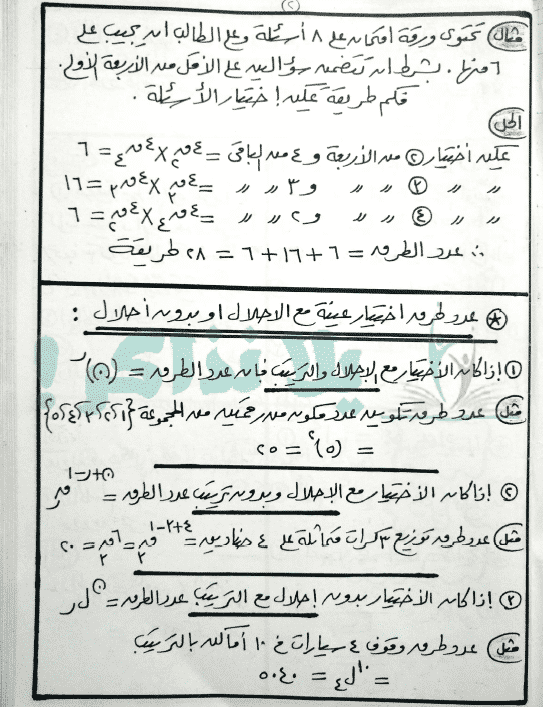 (٢)
مثال تحتوى ورقة امتحان على ٨ أسئلة وعلى الطالب ان يجيب على
٦ منها . بشرط ان تتضمن سؤالين على الأقل من الأربعة الأولى.
فكم طريقة يمكن اختيار الأسئلة .
الحل
يمكن اختيار ② من الأربعة و ٤ من الباقى = ٤ق٢ × ٤ق٤ = ٦
〃 〃 ③ 〃 〃 و ٣ 〃 〃 = ٤ق٣ × ٤ق٣ = ١٦
〃 〃 ④ 〃 〃 و ٢ 〃 〃 = ٤ق٤ × ٤ق٢ = ٦
∴ عدد الطرق = ٦ + ١٦ + ٦ = ٢٨ طريقة
* عدد طرق اختيار عينة مع الاحلال او بدون احلال :
يلا نذاكر
① إذا كان الأختيار مع الإحلال والترتيب فإن عدد الطرق = (ن)ر
مثل عدد طرق تكوين عدد مكون من رقمين من المجموعة {١،٢،٣،٤،٥}
= (٥)٢ = ٢٥
② إذا كان الأختيار مع الإحلال وبدون ترتيب عدد الطرق = ن+ر-١قر
مثل عدد طرق توزيع ٣ كرات متماثلة على ٤ صناديق = ٤+٣-١ق٣ = ٦ق٣ = ٢٠
③ إذا كان الأختيار بدون إحلال مع الترتيب عدد الطرق = نلر
مثل عدد طرق وقوف ٤ سيارات فى ١٠ أماكن بالترتيب
= ١٠ل٤ = ٥٠٤٠